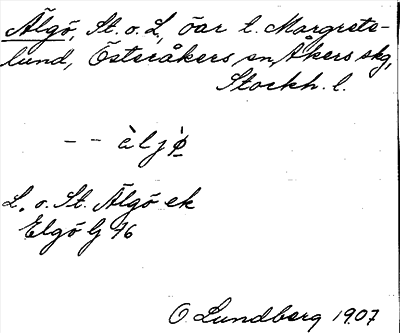 Älgö, St. o. L., öar t. Margrete-
lund, Österåkers sn, Åkers skg,
Stockh. l.
– – àljö̀
L. o. St. Älgö ek
Elgö G 76
O. Lundberg 1907